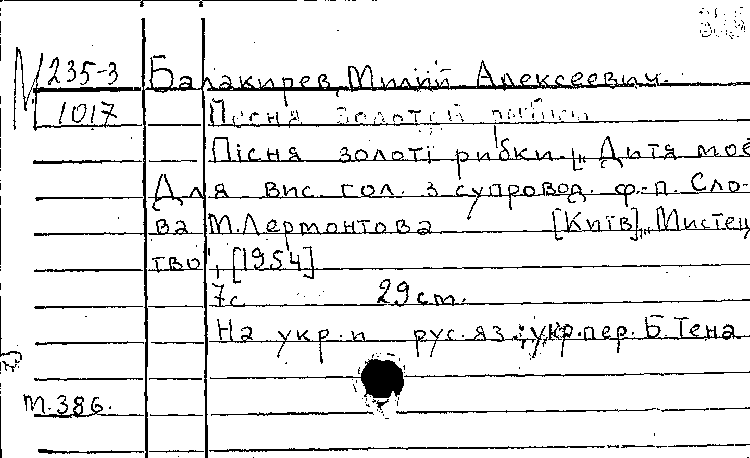 М 235-3 Балакирев, Милий Алексеевич.
1017 Песня золотой рыбки
Пісня золоті рибки. [„Дитя моё
Для вис. гол. з супровод. ф.-п. Сло-
ва М. Лермонтова [Київ], „Мистец
тво", [1954]
7с 29 cm.
На укр. и рус. яз.; укр. пер. Б. Тена
т. 386.